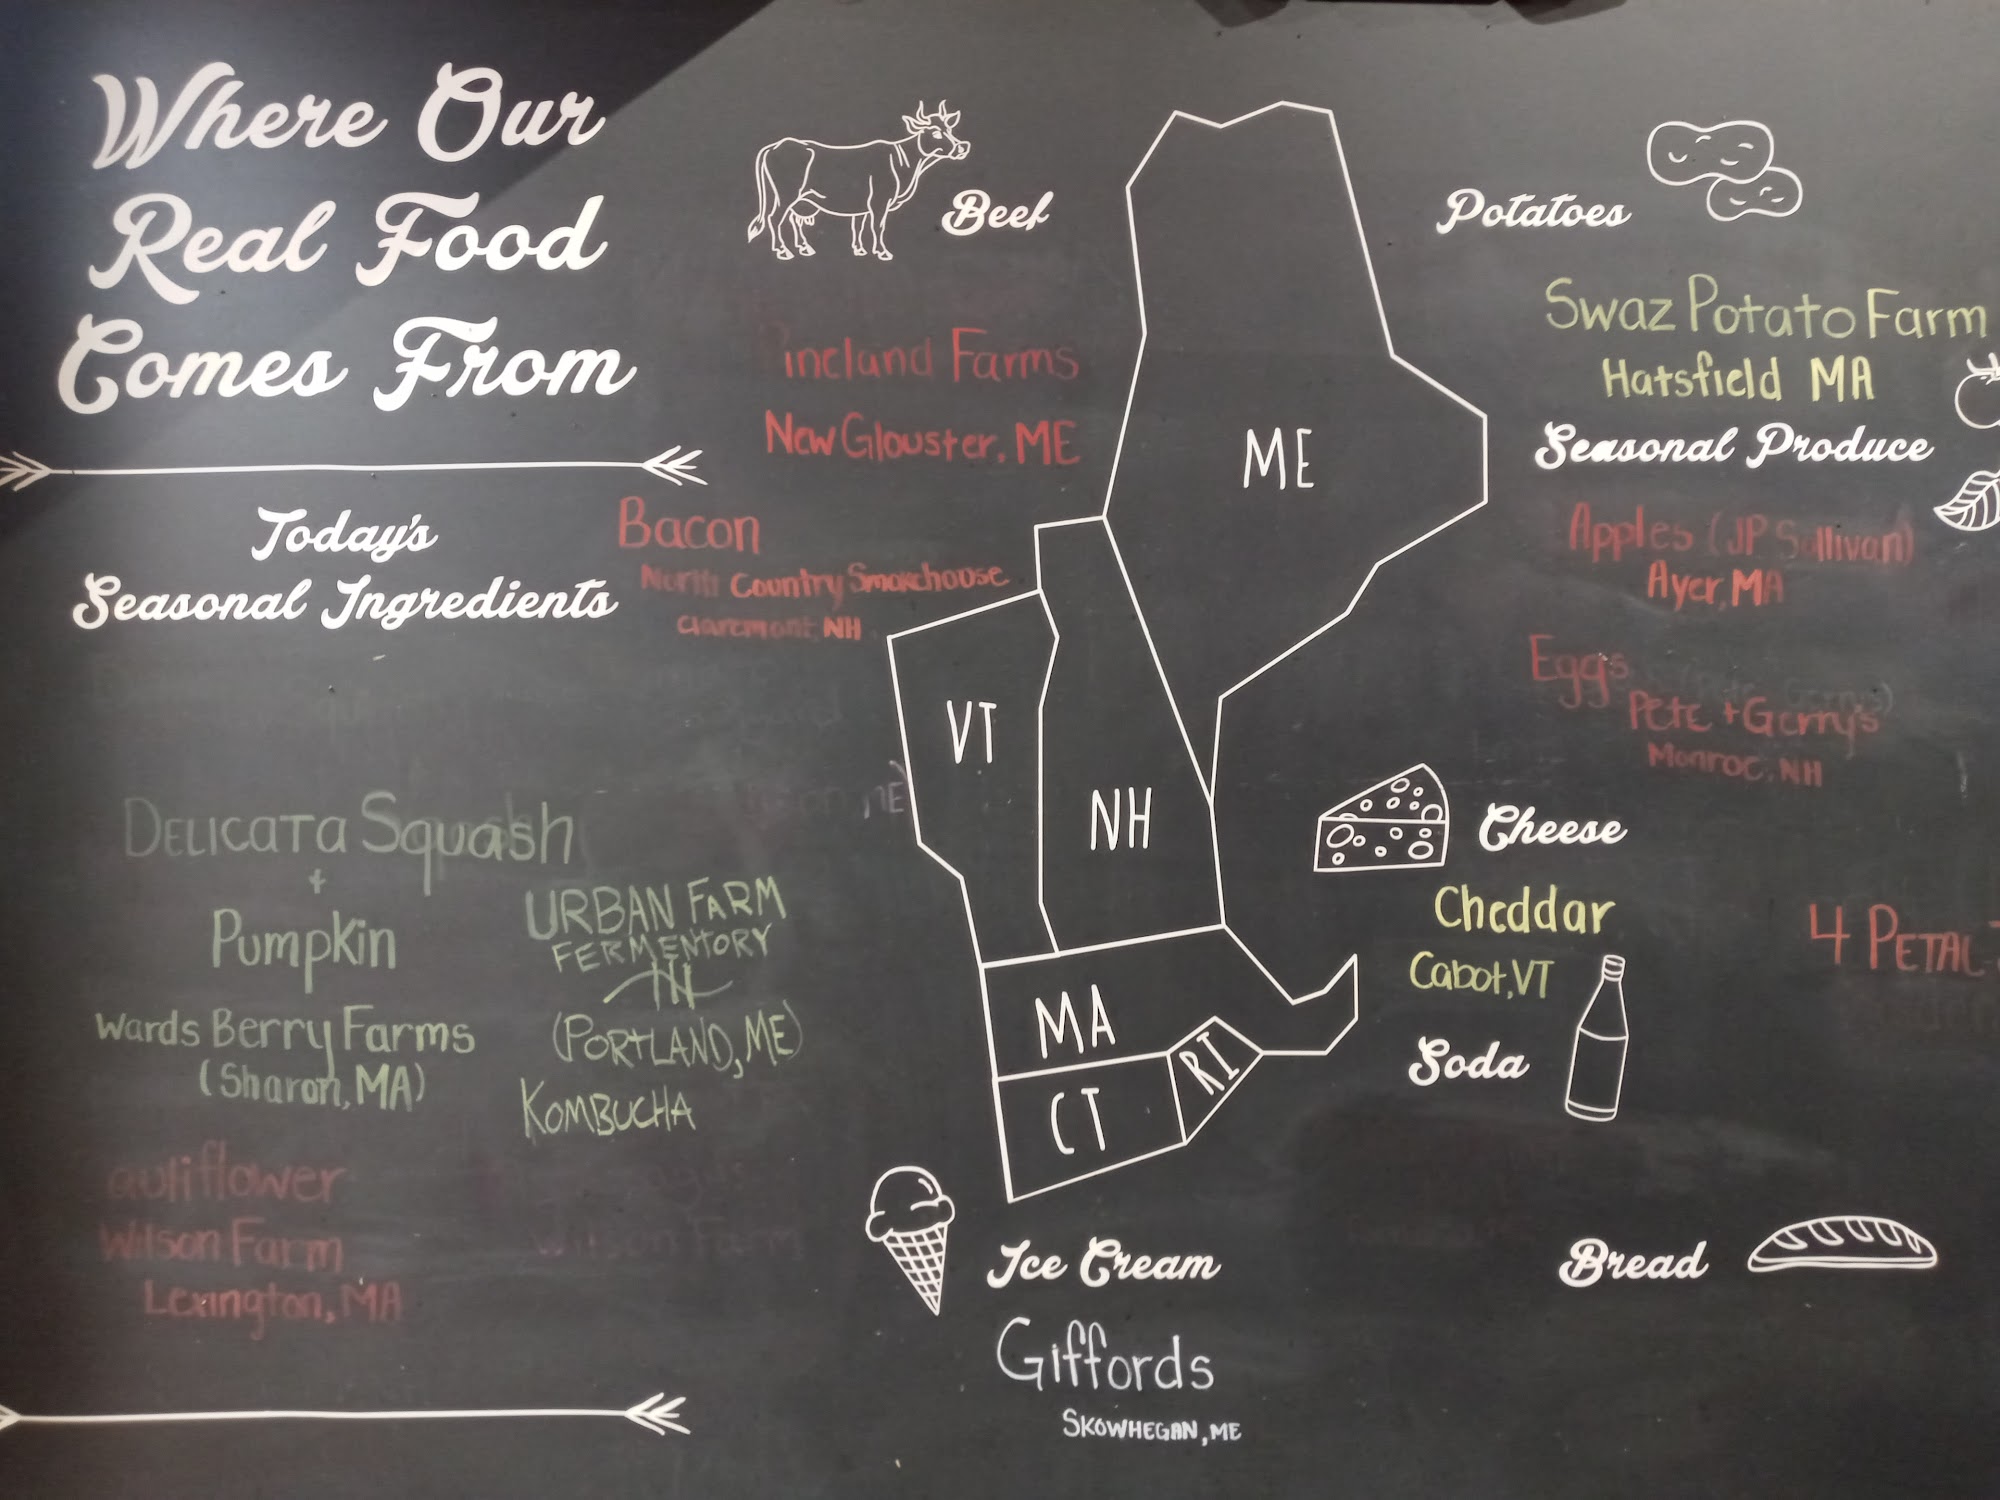 Where Our
Real Food
Comes From
Today's
Seasonal Ingredients
DELICATA Squash
+
Pumpkin
Wards Berry Farms
(Sharon, MA)
URBAN FARM
FERMENTORY
(PORTLAND, ME)
KOMBUCHA
auliflower
Wilson Farm
Lexington, MA
Wilson Farm
Beef
ineland Farms
New Glouster, ME
Bacon
North Country Smokehouse
Claremont, NH
ME
VT
NH
MA
RI
CT
Ice Cream
Giffords
SKOWHEGAN, ME
Potatoes
Swaz Potato Farm
Hatsfield MA
Seasonal Produce
Apples (JP Sullivan)
Ayer, MA
Eggs
Pete + Gerry's
Monroe, NH
Cheese
Cheddar
Cabot, VT
4 PETAL
Soda
Bread